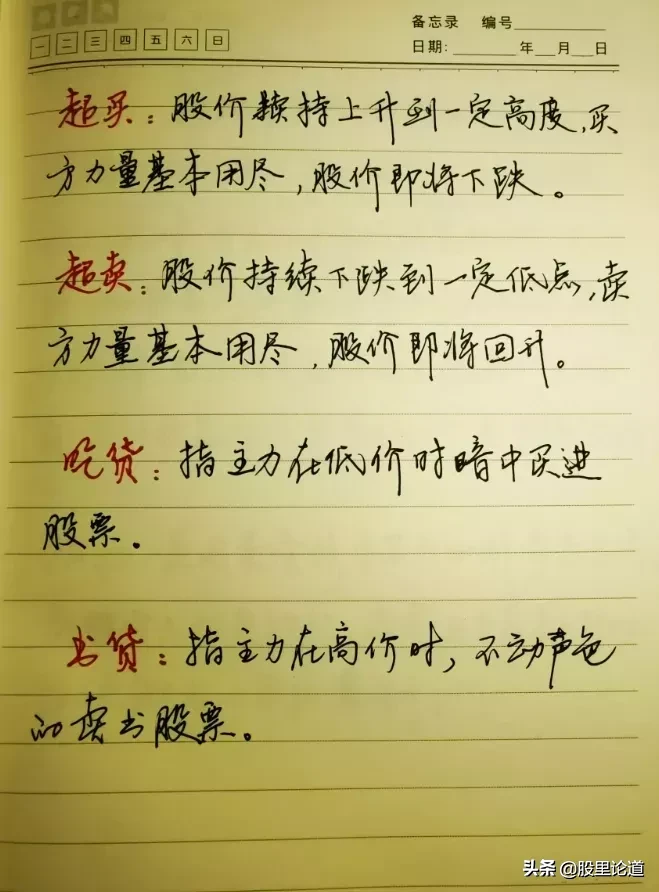 备忘录 编号
一 二 三 四 五 六 日
日期: 年 月 日
超买：股价续持上升到一定高度，买
方力量基本用尽，股价即将下跌。
超卖：股价持续下跌到一定低点，卖
方力量基本用尽，股价即将回升。
吃货：指主力在低价时暗中买进
股票。
出货：指主力在高价时，不动声色
的卖出股票。
头条 @股里论道